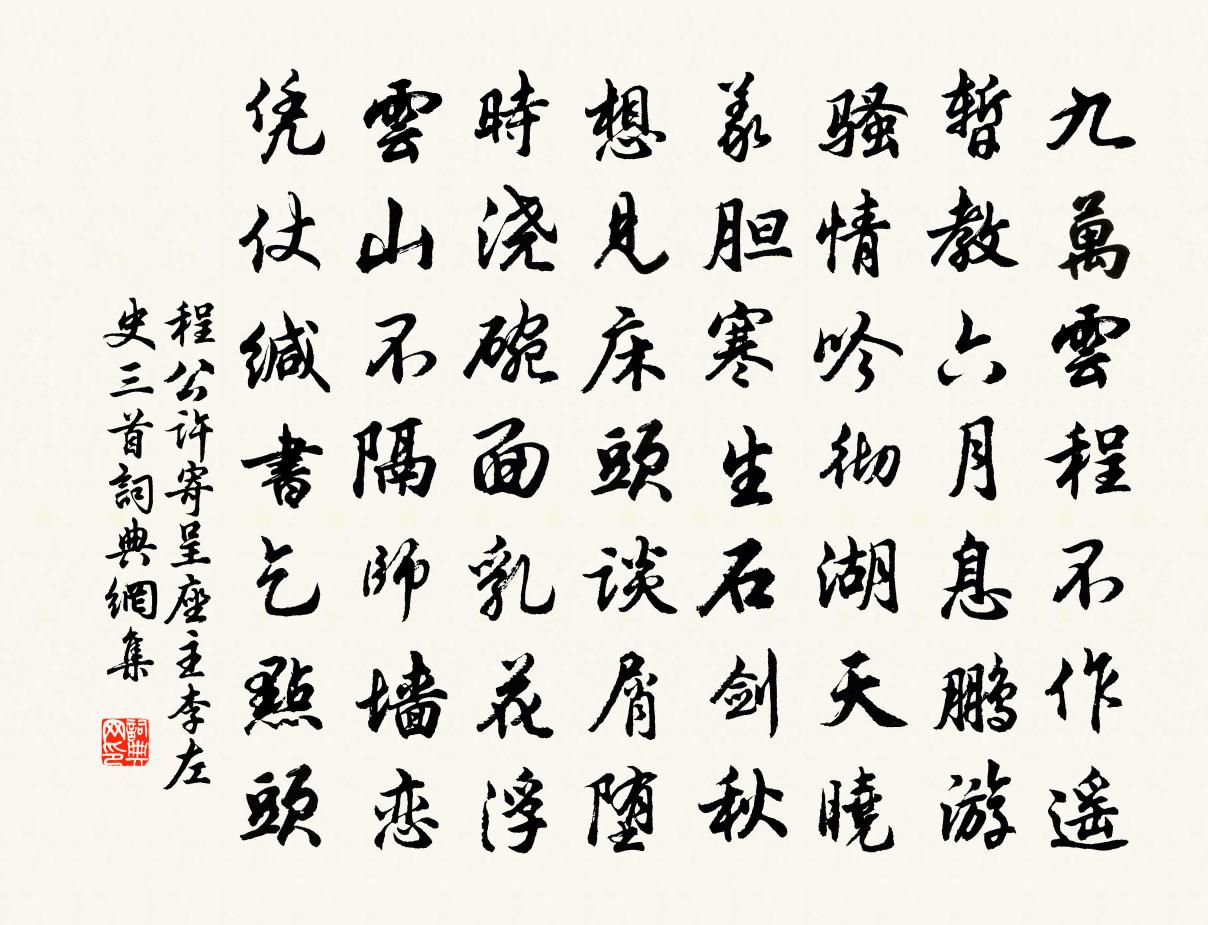 九萬雲程不作遥
暫教六月息鵬游
騷情吟彻湖天曉
義胆寒生石剑秋
想見床頭谈屑堕
時浇碗面乳花浮
雲山不隔師墙恋
凭仗缄書乞點頭
程公许寄呈座主李左
史三首詞典網集
詞典网印